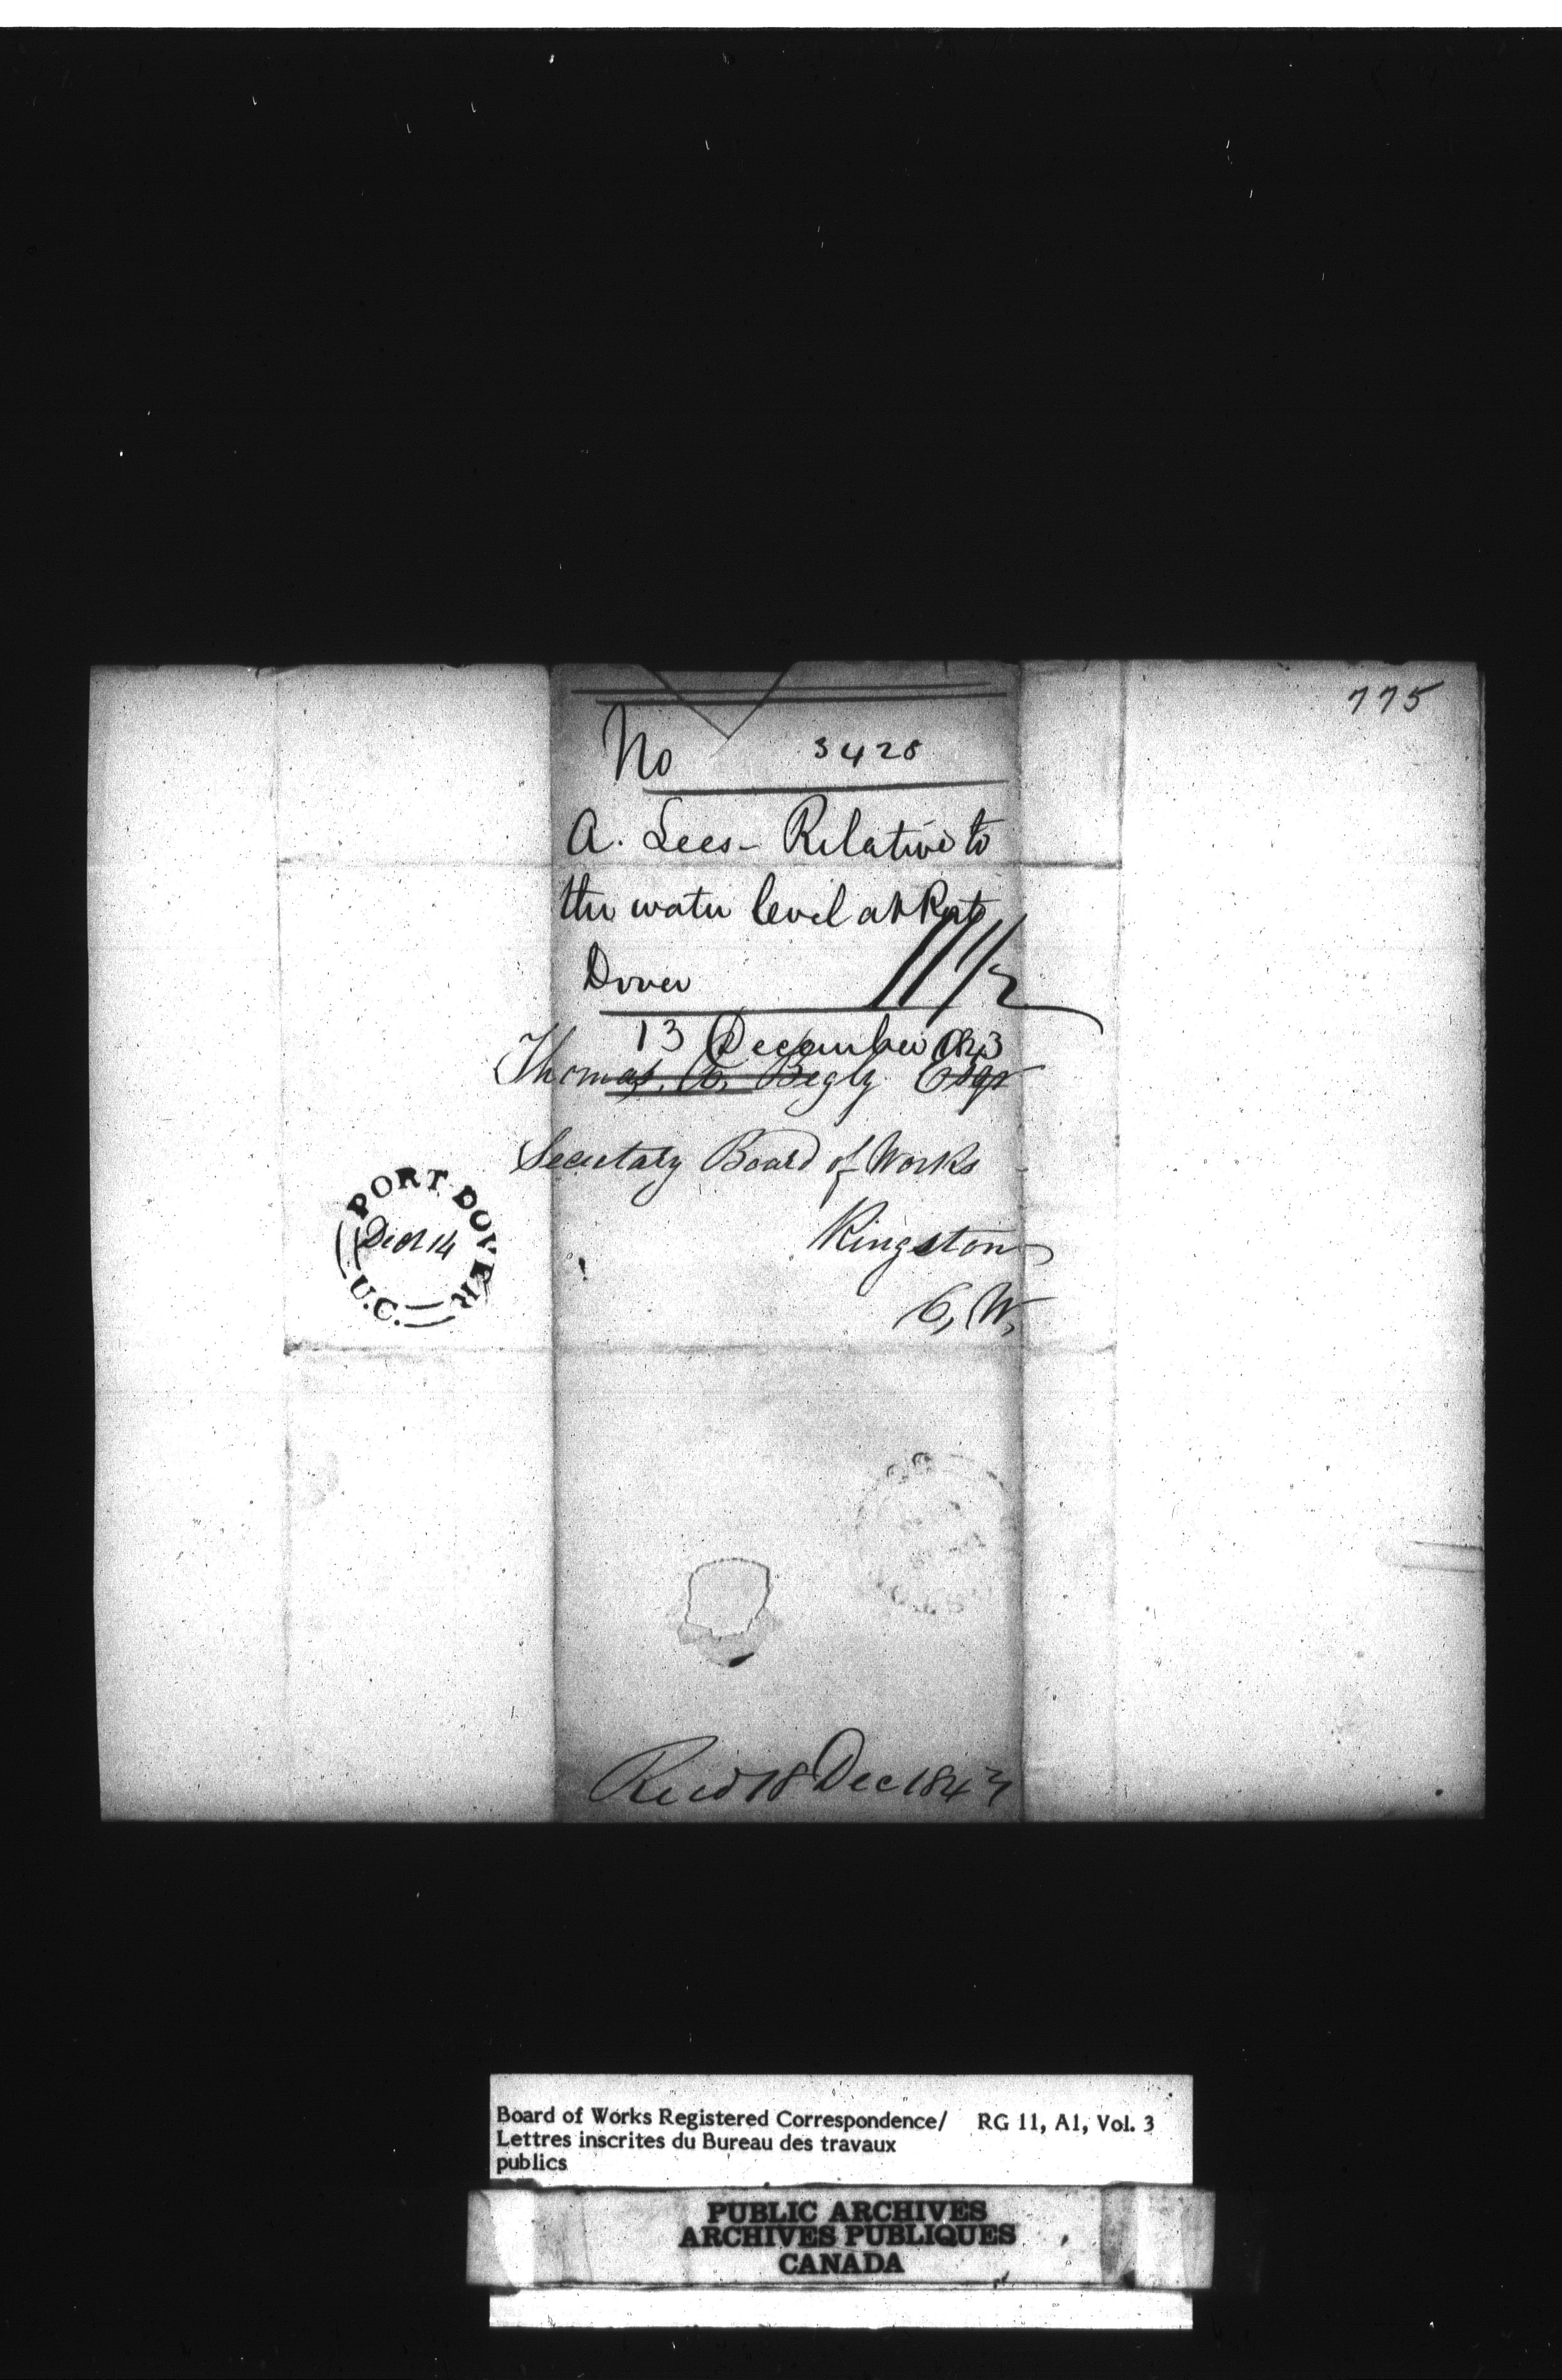 775
No 3428
A. Lees - Relative to
the water level at Port
Dover
11 1/2
13 December 1843
Thomas A. Begly Esqr
Secretary Board of Works
Kingston
C, W,
PORT DOVER
Dec 14
U.C.
Recd 18 Dec 1843
Board of Works Registered Correspondence/ RG 11, A1, Vol. 3
Lettres inscrites du Bureau des travaux
publics
PUBLIC ARCHIVES
ARCHIVES PUBLIQUES
CANADA